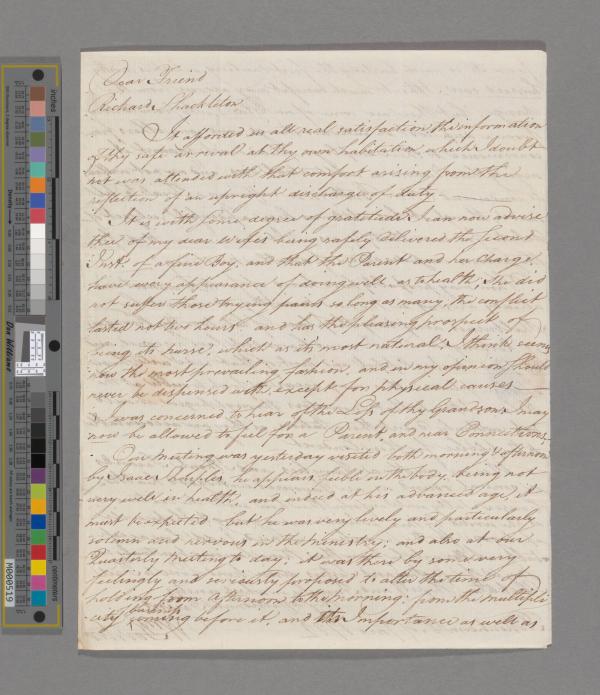 Dear Friend
Richard Shackleton
It afforded us all real satisfaction, the information
of thy safe arrival at thy own habitation, which I doubt
not was attended with that comfort arising from the
reflection of an upright discharge of duty
It is with some degree of gratitude I can now advise
thee of my dear Wifes being safely delivered the second
Inst. of a fine Boy, and that the Parent and her Charge
have every appearance of doing well, as to health; she did
not suffer those trying pains so long as many, the conflict
lasted not two hours and has the pleasing prospect of
being its nurse, which as its most natural I think seems
now the most prevailing fashion, and in my opinion should
never be dispensed with, except for physical causes
I was concerned to hear of the Loss of thy Grandson I may
now be allowed to feel for a Parent, and near Connections.
Our Meeting was yesterday visited both morning & afternoon
by Isaac Sharples, he appears feible in the body, being not
very well in health, and indeed at his advanced age, it
must be expected but he was very lively and particularly
solemn and nervous in the ministry; and also at our
Quarterly Meeting to day; it was there by some very
feelingly and seriously proposed to alter the time of
holding from afternoon to the morning; from the multipli
city business coming before it, and its Importance as well as
M000519
inches
centimetres
Don Williams